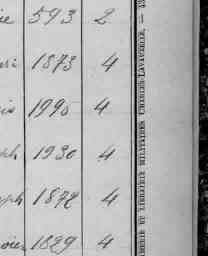 ie 593 2
1873 4
is 1990 4
ph 1930 4
ph 1872 4
1829 4
IMERIE ET LIBRAIRIE MILITAIRES CHARLES-LAVAUZELLE. —